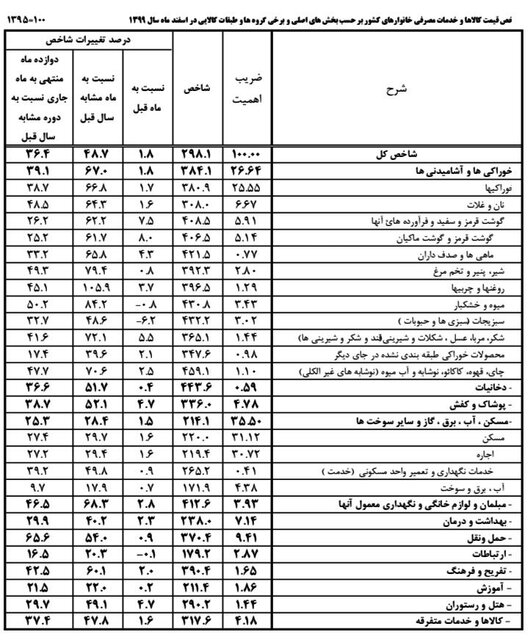 خص قیمت کالاها و خدمات مصرفی خانوارهای کشور بر حسب بخش های اصلی و برخی گروه ها و طبقات کالایی در اسفند ماه سال ۱۳۹۹ ۱۰۰-۱۳۹۵
شرح ضریب اهمیت شاخص درصد تغییرات شاخص
نسبت به ماه قبل نسبت به ماه مشابه سال قبل دوازده ماه منتهی به ماه جاری نسبت به دوره مشابه سال قبل
شاخص کل ۱۰۰.۰۰ ۲۹۸.۱ ۱.۸ ۴۸.۷ ۳۶.۴
خوراکی ها و آشامیدنی ها ۲۶.۶۴ ۳۸۴.۱ ۱.۸ ۶۷.۰ ۳۹.۱
خوراکیها ۲۵.۵۵ ۳۸۰.۹ ۱.۷ ۶۶.۸ ۳۸.۷
نان و غلات ۶.۶۷ ۳۰۸.۰ ۱.۶ ۶۴.۳ ۴۸.۵
گوشت قرمز و سفید و فرآورده های آنها ۵.۹۱ ۴۰۸.۵ ۷.۵ ۶۲.۲ ۲۶.۲
گوشت قرمز و گوشت ماکیان ۵.۱۴ ۴۰۶.۵ ۸.۰ ۶۱.۷ ۲۵.۲
ماهی ها و صدف داران ۰.۷۷ ۴۲۱.۵ ۴.۳ ۶۵.۸ ۳۳.۲
شیر، پنیر و تخم مرغ ۲.۸۰ ۳۹۲.۳ ۰.۸ ۷۹.۴ ۴۹.۳
روغنها و چربیها ۱.۲۹ ۳۹۶.۵ ۳.۷ ۱۰۵.۹ ۴۵.۱
میوه و خشکبار ۳.۴۳ ۴۳۰.۸ -۰.۸ ۸۴.۲ ۵۰.۲
سبزیجات (سبزی ها و حبوبات ) ۳.۰۲ ۴۳۲.۲ -۶.۲ ۴۸.۶ ۳۲.۷
شکر، مربا، عسل ، شکلات و شیرینی(قند و شکر و شیرینی ها) ۱.۴۴ ۳۶۵.۱ ۵.۵ ۷۲.۱ ۴۱.۶
محصولات خوراکی طبقه بندی نشده در جای دیگر ۰.۹۸ ۳۴۷.۶ ۲.۱ ۳۹.۶ ۱۷.۴
چای، قهوه، کاکائو، نوشابه و آب میوه (نوشابه های غیر الکلی) ۱.۱۰ ۴۵۹.۱ ۲.۵ ۷۰.۶ ۴۷.۷
- دخانیات ۰.۵۹ ۴۴۳.۶ ۰.۴ ۵۱.۷ ۳۶.۶
- پوشاک و کفش ۴.۷۸ ۳۳۶.۰ ۴.۷ ۵۲.۱ ۳۸.۷
-مسکن ، آب ، برق ، گاز و سایر سوخت ها ۳۵.۵۰ ۲۱۴.۱ ۱.۵ ۲۸.۴ ۲۵.۳
مسکن ۳۱.۱۲ ۲۲۰.۰ ۱.۶ ۲۹.۷ ۲۷.۴
اجاره ۳۰.۷۲ ۲۱۹.۴ ۱.۶ ۲۹.۴ ۲۷.۲
خدمات نگهداری و تعمیر واحد مسکونی (خدمت ) ۰.۴۱ ۲۶۵.۲ ۰.۹ ۴۹.۸ ۳۹.۲
آب ، برق و سوخت ۴.۳۸ ۱۷۱.۹ ۰.۷ ۱۷.۹ ۹.۷
- مبلمان و لوازم خانگی و نگهداری معمول آنها ۳.۹۳ ۴۱۲.۶ ۲.۸ ۶۸.۳ ۴۶.۵
- بهداشت و درمان ۷.۱۴ ۲۳۸.۰ ۲.۳ ۴۰.۲ ۲۹.۹
- حمل ونقل ۹.۴۱ ۳۷۰.۴ ۰.۹ ۵۴.۰ ۶۵.۶
- ارتباطات ۲.۸۷ ۱۷۹.۲ -۰.۱ ۲۰.۳ ۱۶.۵
- تفریح و فرهنگ ۱.۶۵ ۳۹۰.۴ ۲.۰ ۶۰.۱ ۴۲.۵
- آموزش ۱.۸۶ ۲۱۱.۴ ۰.۲ ۲۲.۰ ۲۱.۵
- هتل و رستوران ۱.۴۴ ۲۹۰.۲ ۴.۷ ۴۹.۱ ۲۹.۷
- کالاها و خدمات متفرقه ۴.۱۸ ۳۱۷.۶ ۱.۶ ۴۷.۸ ۳۷.۴